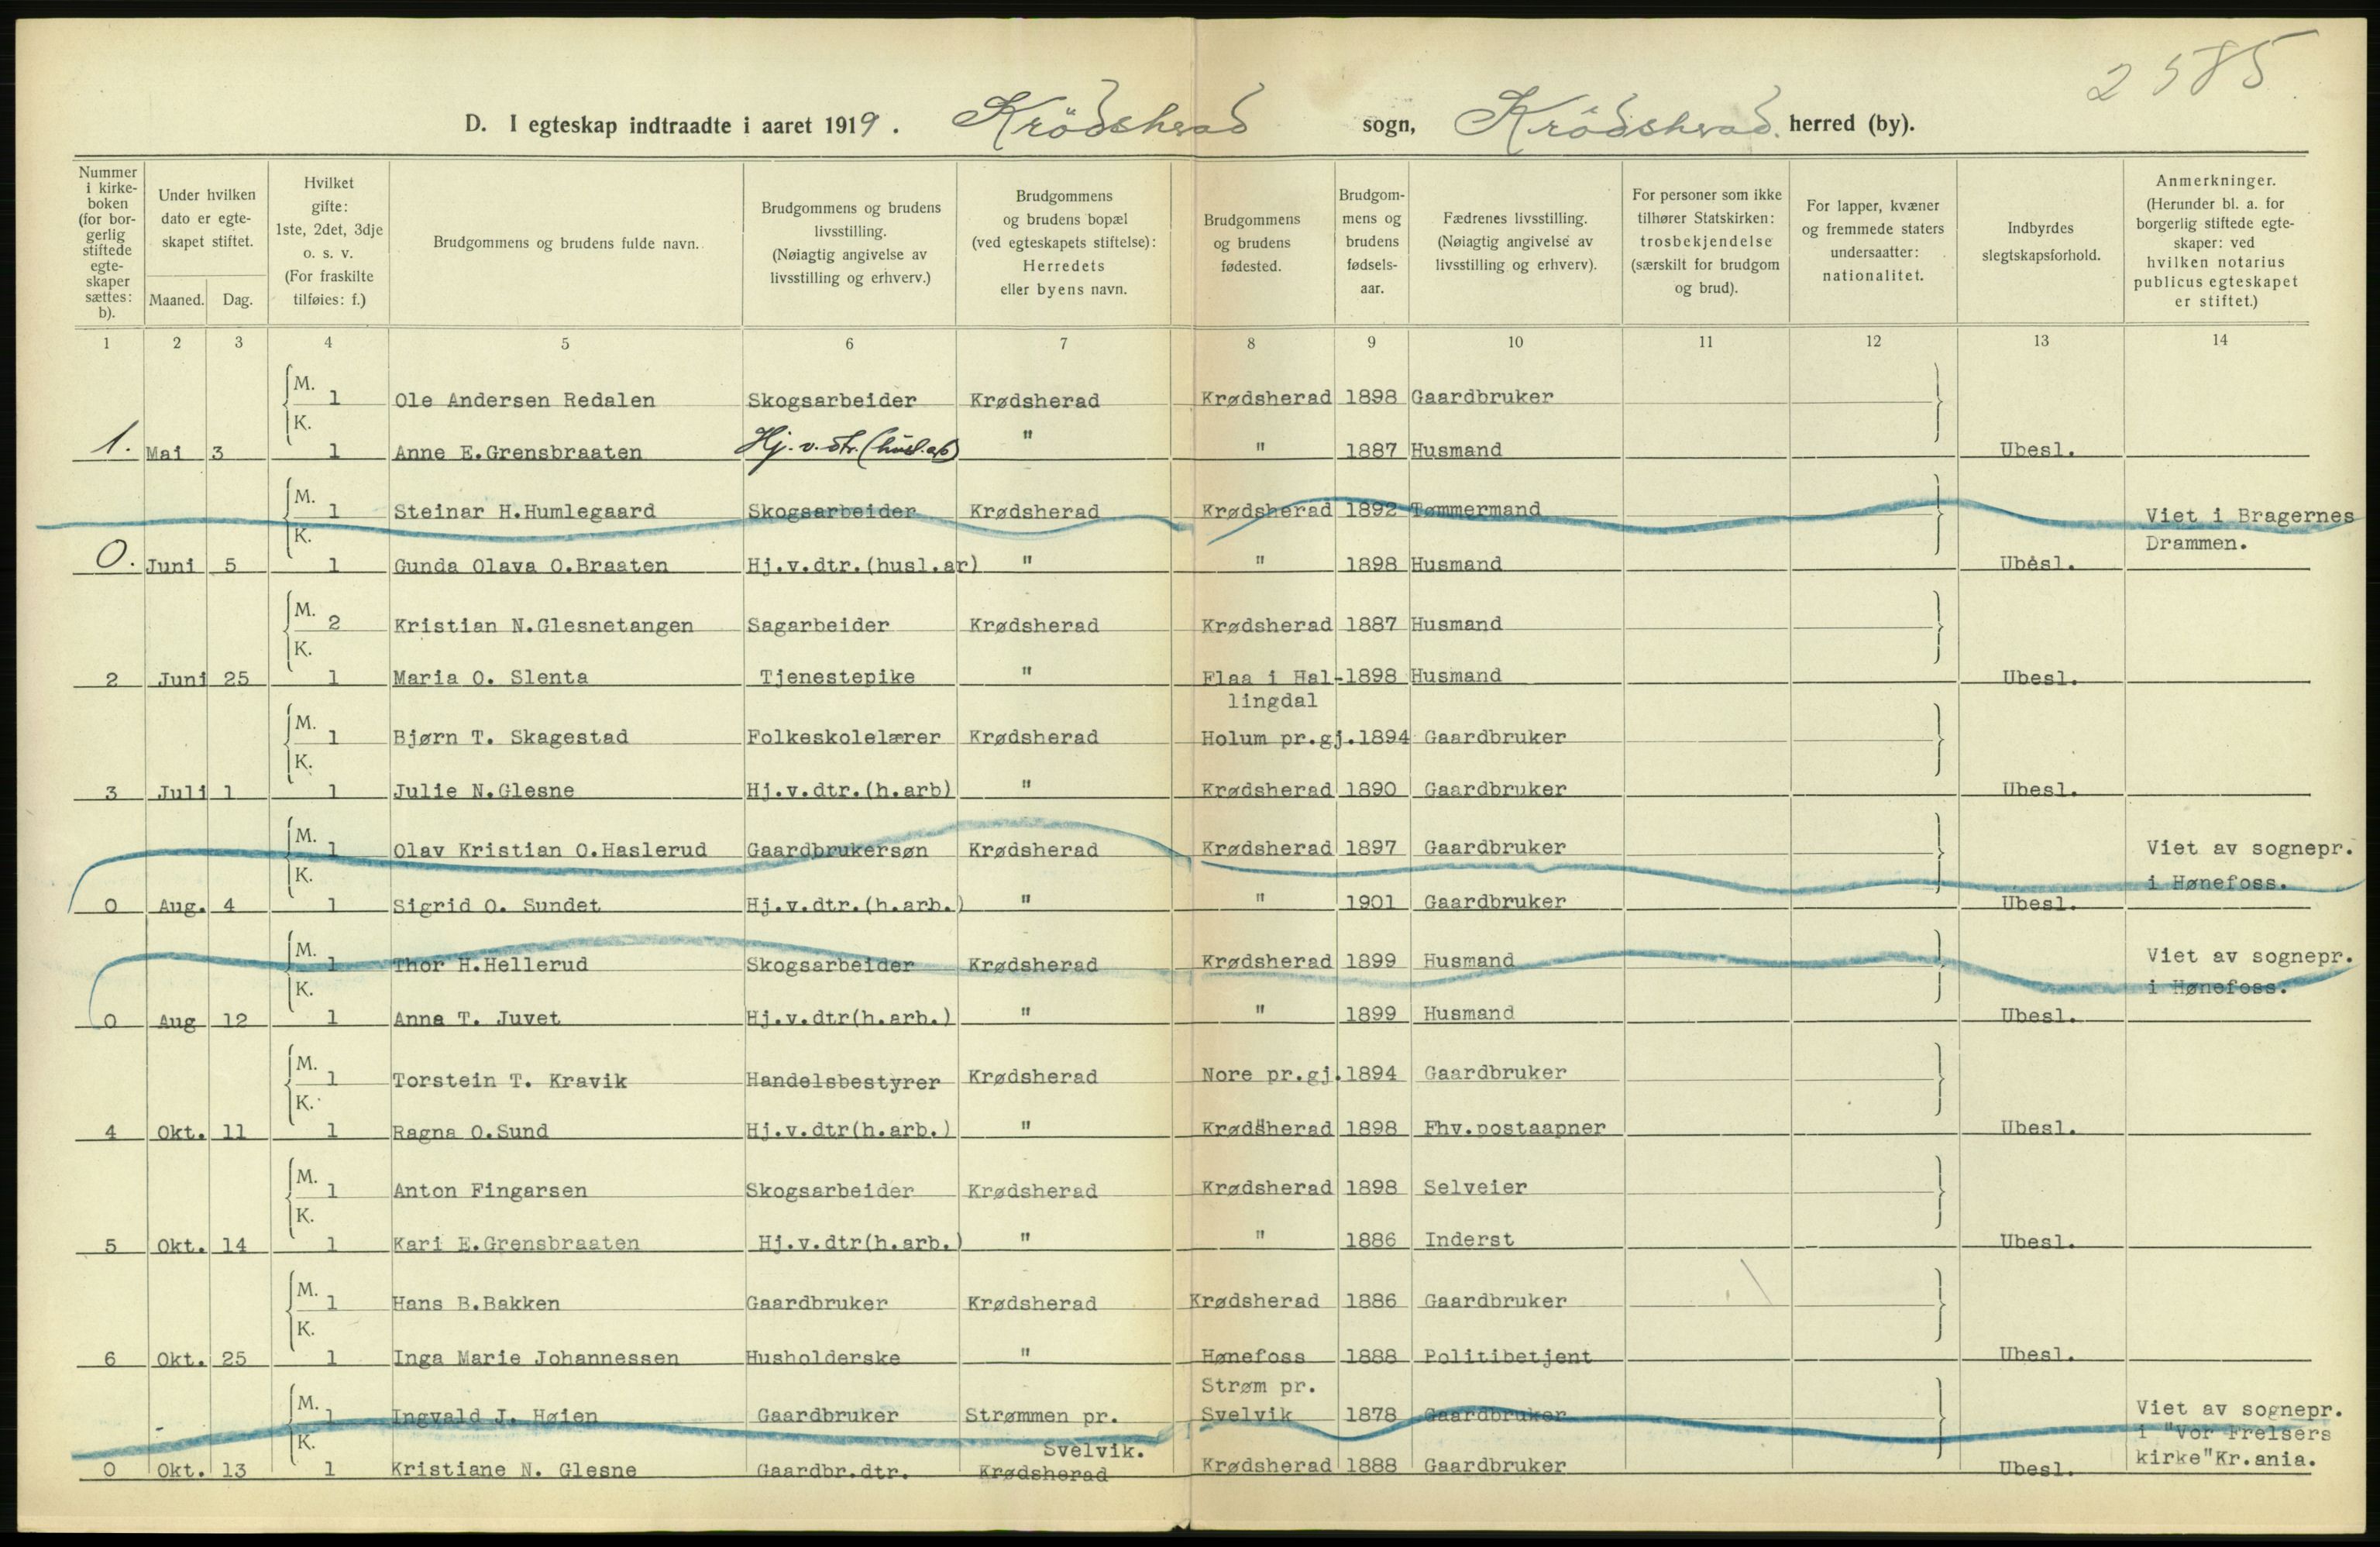 2585
D. I egteskap indtraadte i aaret 1919. Krödsherad sogn, Krödsherad herred (by).
Nummer i kirke- boken (for bor- gerlig stiftede egte- skaper sættes: b).
Under hvilken dato er egte- skapet stiftet.
Maaned. Dag.
Hvilket gifte: 1ste, 2det, 3dje o. s. v. (For fraskilte tilføies: f.)
Brudgommens og brudens fulde navn.
Brudgommens og brudens livsstilling. (Nøiagtig angivelse av livsstilling og erhverv.)
Brudgommens og brudens bopæl (ved egteskapets stiftelse): Herredets eller byens navn.
Brudgommens og brudens fødested.
Brudgom- mens og brudens fødsels- aar.
Fædrenes livsstilling. (Nøiagtig angivelse av livsstilling og erhverv).
For personer som ikke tilhører Statskirken: trosbekjendelse (særskilt for brudgom og brud).
For lapper, kvæner og fremmede staters undersaatter: nationalitet.
Indbyrdes slegtskapsforhold.
Anmerkninger. (Herunder bl. a. for borgerlig stiftede egte- skaper: ved hvilken notarius publicus egteskapet er stiftet.)
1 2 3 4 5 6 7 8 9 10 11 12 13 14
M. 1 Ole Andersen Redalen Skogsarbeider Krødsherad Krødsherad 1898 Gaardbruker
1. Mai 3 K. 1 Anne E.Grensbraaten Hj.v.dtr.(husl.arb) " " 1887 Husmand Ubesl.
M. 1 Steinar H.Humlegaard Skogsarbeider Krødsherad Krødsherad 1892 Tømmermand Viet i Bragernes
Drammen.
0. Juni 5 K. 1 Gunda Olava O.Braaten Hj.v.dtr.(husl.ar) " " 1898 Husmand Ubesl.
M. 2 Kristian N.Glesnetangen Sagarbeider Krødsherad Krødsherad 1887 Husmand
2 Juni 25 K. 1 Maria O. Slenta Tjenestepike " Flaa i Hal- 1898 Husmand Ubesl.
lingdal
M. 1 Bjørn T. Skagestad Folkeskolelærer Krødsherad Holum pr.gj. 1894 Gaardbruker
3 Juli 1 K. 1 Julie N.Glesne Hj.v.dtr.(h.arb) " Krødsherad 1890 Gaardbruker Ubesl.
M. 1 Olav Kristian O.Haslerud Gaardbrukersøn Krødsherad Krødsherad 1897 Gaardbruker Viet av sognepr.
i Hønefoss.
0 Aug. 4 K. 1 Sigrid O. Sundet Hj.v.dtr.(h.arb.) " " 1901 Gaardbruker Ubesl.
M. 1 Thor H.Hellerud Skogsarbeider Krødsherad Krødsherad 1899 Husmand Viet av sognepr.
i Hønefoss.
0 Aug 12 K. 1 Anna T. Juvet Hj.v.dtr(h.arb.) " " 1899 Husmand Ubesl.
M. 1 Torstein T. Kravik Handelsbestyrer Krødsherad Nore pr.gj. 1894 Gaardbruker
4 Okt. 11 K. 1 Ragna O.Sund Hj.v.dtr(h.arb.) " Krødsherad 1898 Fhv.postaapner Ubesl.
M. 1 Anton Fingarsen Skogsarbeider Krødsherad Krødsherad 1898 Selveier
5 Okt. 14 K. 1 Kari E.Grensbraaten Hj.v.dtr(h.arb.) " " 1886 Inderst Ubesl.
M. 1 Hans B.Bakken Gaardbruker Krødsherad Krødsherad 1886 Gaardbruker
6 Okt. 25 K. 1 Inga Marie Johannessen Husholderske " Hønefoss 1888 Politibetjent Ubesl.
Strøm pr.
M. 1 Ingvald J. Høien Gaardbruker Strømmen pr. Svelvik 1878 Gaardbruker Viet av sognepr.
Svelvik. i "Vor Frelsers
0 Okt. 13 K. 1 Kristiane N. Glesne Gaardbr.dtr. Krødsherad Krødsherad 1888 Gaardbruker Ubesl. kirke"Kr.ania.